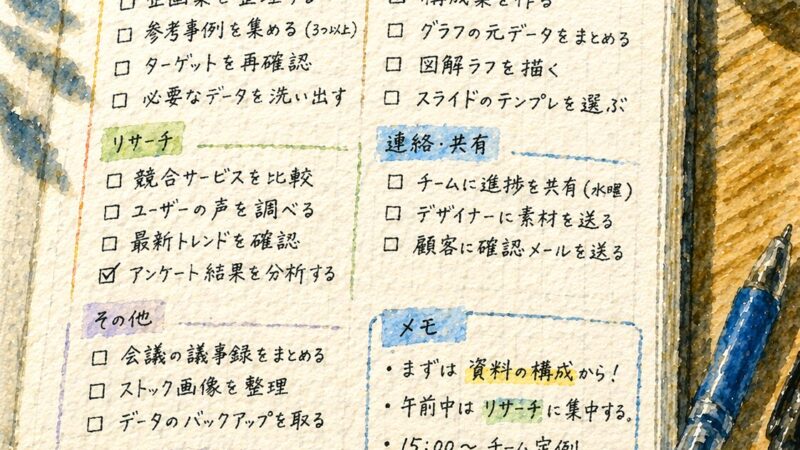 企画案を整理する
□ 参考事例を集める (3つ以上)
□ ターゲットを再確認
□ 必要なデータを洗い出す
リサーチ
□ 競合サービスを比較
□ ユーザーの声を調べる
□ 最新トレンドを確認
☑ アンケート結果を分析する
その他
□ 会議の議事録をまとめる
□ ストック画像を整理
□ データのバックアップを取る
構成案を作る
□ グラフの元データをまとめる
□ 図解ラフを描く
□ スライドのテンプレを選ぶ
連絡・共有
□ チームに進捗を共有 (水曜)
□ デザイナーに素材を送る
□ 顧客に確認メールを送る
メモ
・まずは 資料の構成から!
・午前中は リサーチに集中する。
・15:00〜 チーム定例